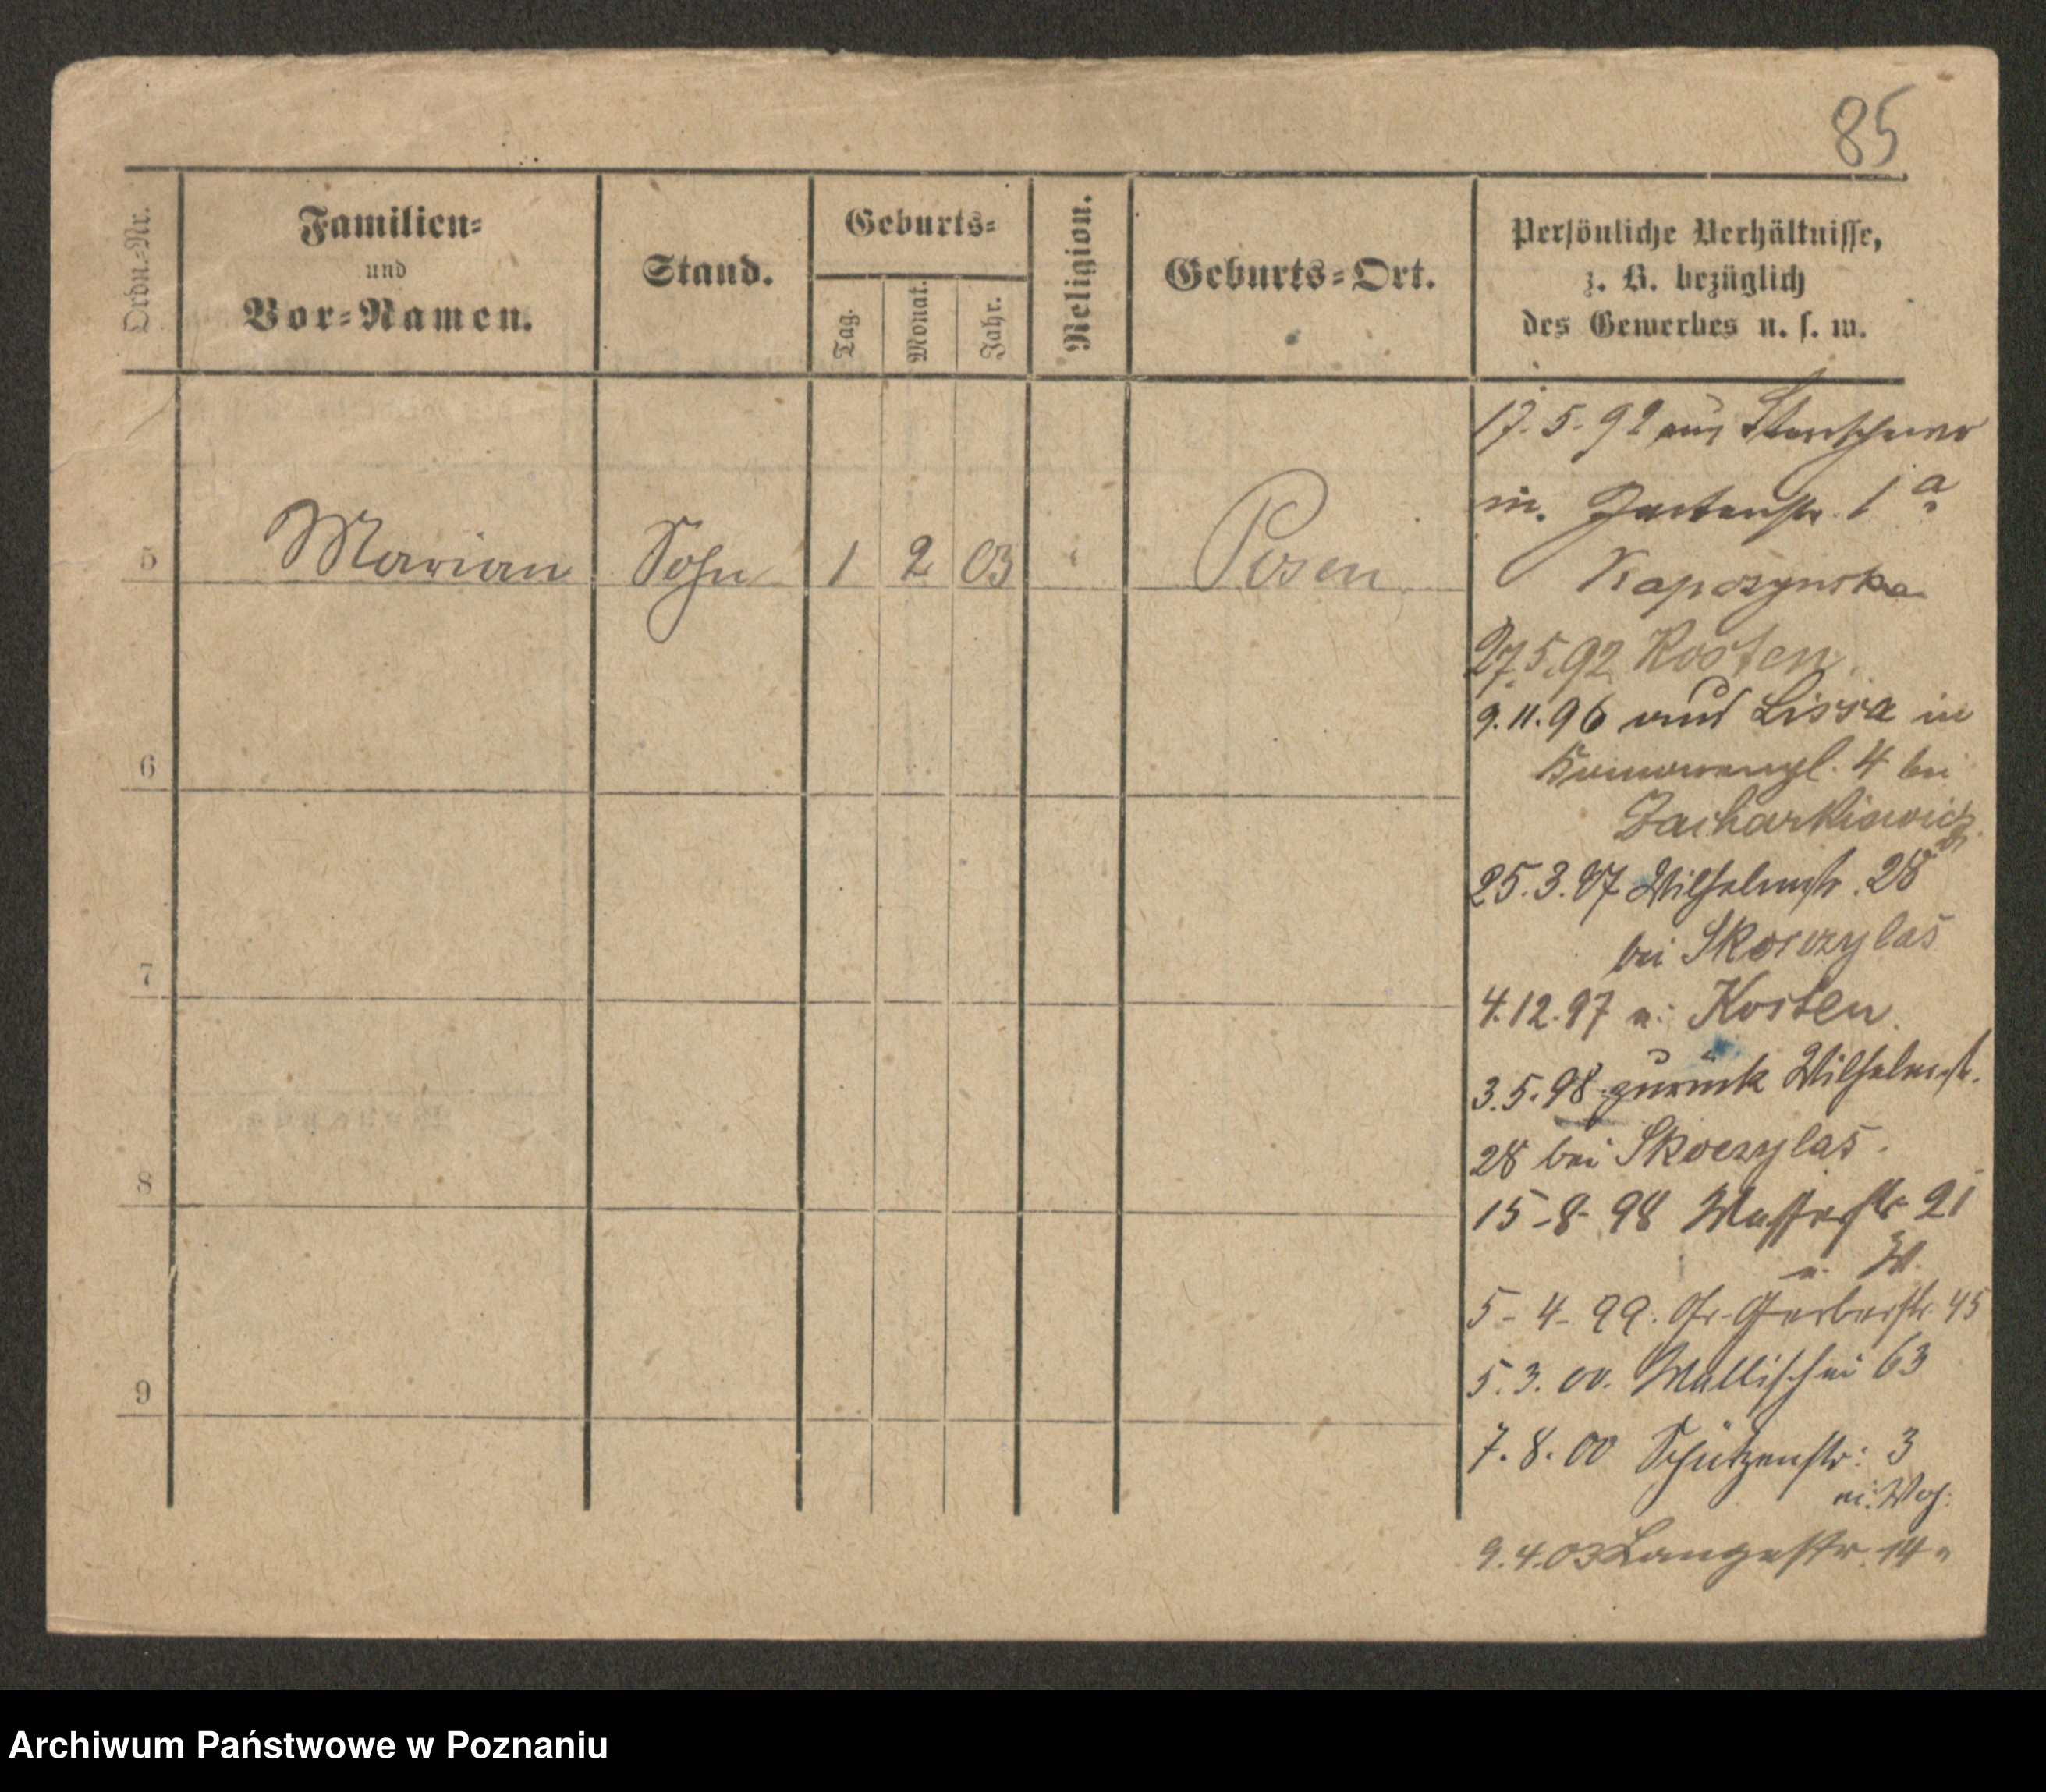 85
Ordn.-Nr.
Familien-
und
Vor-Namen.
Stand.
Geburts-
Tag.
Monat.
Jahr.
Religion.
Geburts-Ort.
Persönliche Verhältnisse,
z. B. bezüglich
des Gewerbes u. s. w.
5 Marian Sohn 1 2 03 Posen
6
7
8
9
17.5.92 aus Stenschewo
in. Gartenstr. 1a
Kapczynska
27.5.92 Kosten.
9.11.96 aus Lissa in
4 bei
Zacharkiewicz
25.3.97 Wilhelmstr. 28
bei Skoczylas
4.12.97 n: Kosten.
3.5.98 zurück Wilhelmstr.
28 bei Skoczylas.
15-8-98 Wasserstr 21
5-4-99. Gr. Gerberstr. 45
5.3.00. Wallischei 63
7.8.00 Schützenstr: 3
9.4.03 Langestr. 14
Archiwum Państwowe w Poznaniu